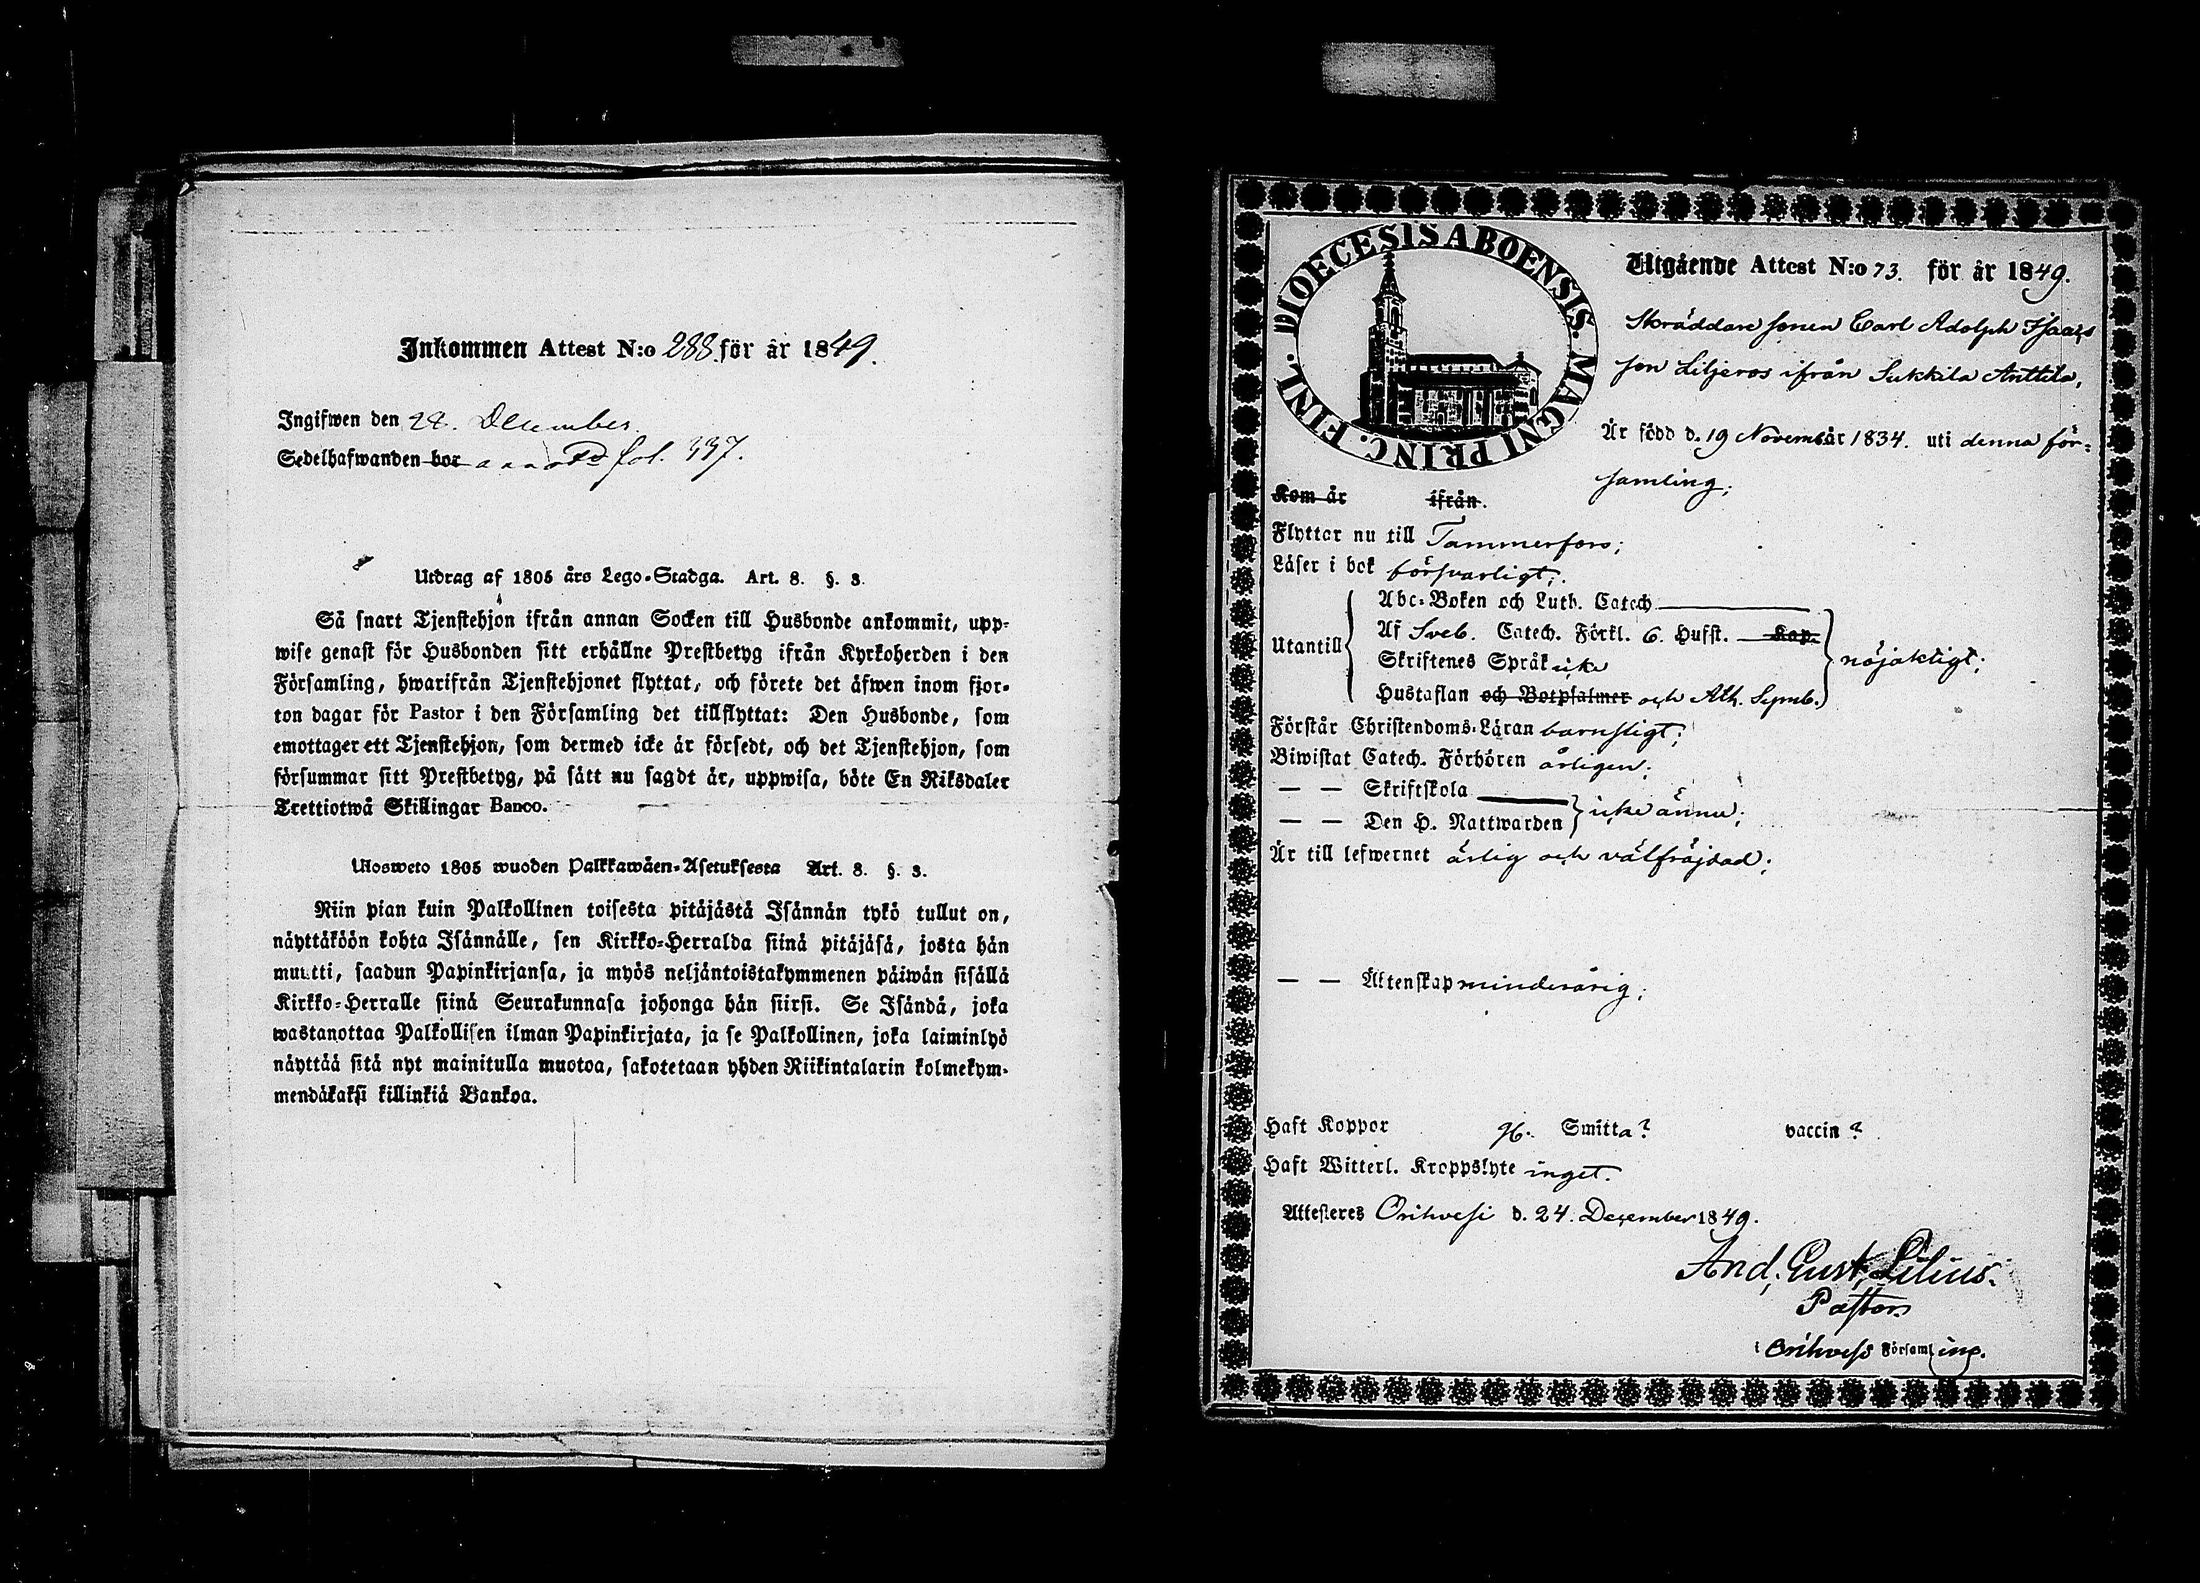 Inkommen Attest N:o 288. för år 1849.
Ingifwen den 28. December.
Sedelhafwanden bor annot fol. 337.
Utdrag af 1805 års Lego-Stadga. Art. 8. §. 3.
Så snart Tjenstehjon ifrån annan Socken till Husbonde ankommit, upp-
wise genast för Husbonden sitt erhållne Prestbetyg ifrån Kyrkoherden i den
Församling, hwarifrån Tjenstehjonet flyttat, och förete det äfwen inom fjor-
ton dagar för Pastor i den Församling det tillflyttat: Den Husbonde, som
emottager ett Tjenstehjon, som dermed icke är försedt, och det Tjenstehjon, som
försummar sitt Prestbetyg, på sätt nu sagdt är, uppwisa, böte En Riksdaler
Trettiotwå Skillingar Banco.
Ulosweto 1805 wuoden Palkkawäen-Asetuksesta Art. 8. §. 3.
Niin pian kuin Palkollinen toisesta pitäjästä Isännän tykö tullut on,
näyttäköön kohta Isännälle, sen Kirkko-Herralda siinä pitäjäsä, josta hän
muutti, saadun Papinkirjansa, ja myös neljäntoistakymmenen päiwän sisällä
Kirkko-Herralle siinä Seurakunnasa johonga hän siirsi. Se Isändä, joka
wastanottaa Palkollisen ilman Papinkirjata, ja se Palkollinen, joka laiminlyö
näyttää sitä nyt mainitulla muotoa, sakotetaan yhden Riikintalarin kolmekym-
mendäkaksi killinkiä Bankoa.
DIOECESIS ABOENSIS. MAGNI PRINC. FINL.
Utgående Attest N:o 73. för år 1849.
Skräddare sonen Carl Adolph Isaaks
son Liljeros ifrån Sukkila Anttila,
Är född d. 19 November år 1834. uti denna för-
samling;
Kom år ifrån.
Flyttar nu till Tammerfors;
Läser i bok försvarligt;
Utantill
Abc-Boken och Luth. Catech.
Af Sveb. Catech. Förkl. 6. Hufst. Kap.
Skriftenes Språk icke
Hustaflan och Botpsalmer och Ath. Symb.
nöjaktigt;
Förstår Christendoms-Läran barnsligt;
Biwistat Catech. Förhören årligen;
— — Skriftskola
— — Den H. Nattwarden
icke ännu;
Är till lefwernet ärlig och välfräjdad;
— — Äktenskap minderårig;
Haft Koppor Smitta? vaccin?
Haft Witterl. Kroppslyte inget.
Attesteres Orihvesi d. 24. December 1849.
And. Gust. Lilius.
Pastor
i Orihvesi Församling.